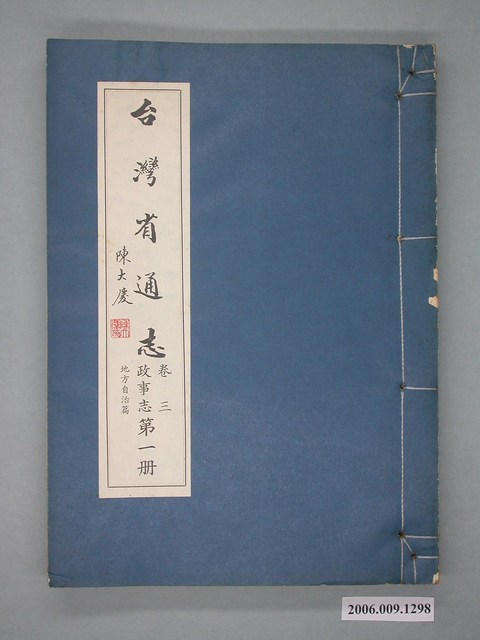 台灣省通志
陳大慶
卷三
政事志
地方自治篇
第一册
2006.009.1298